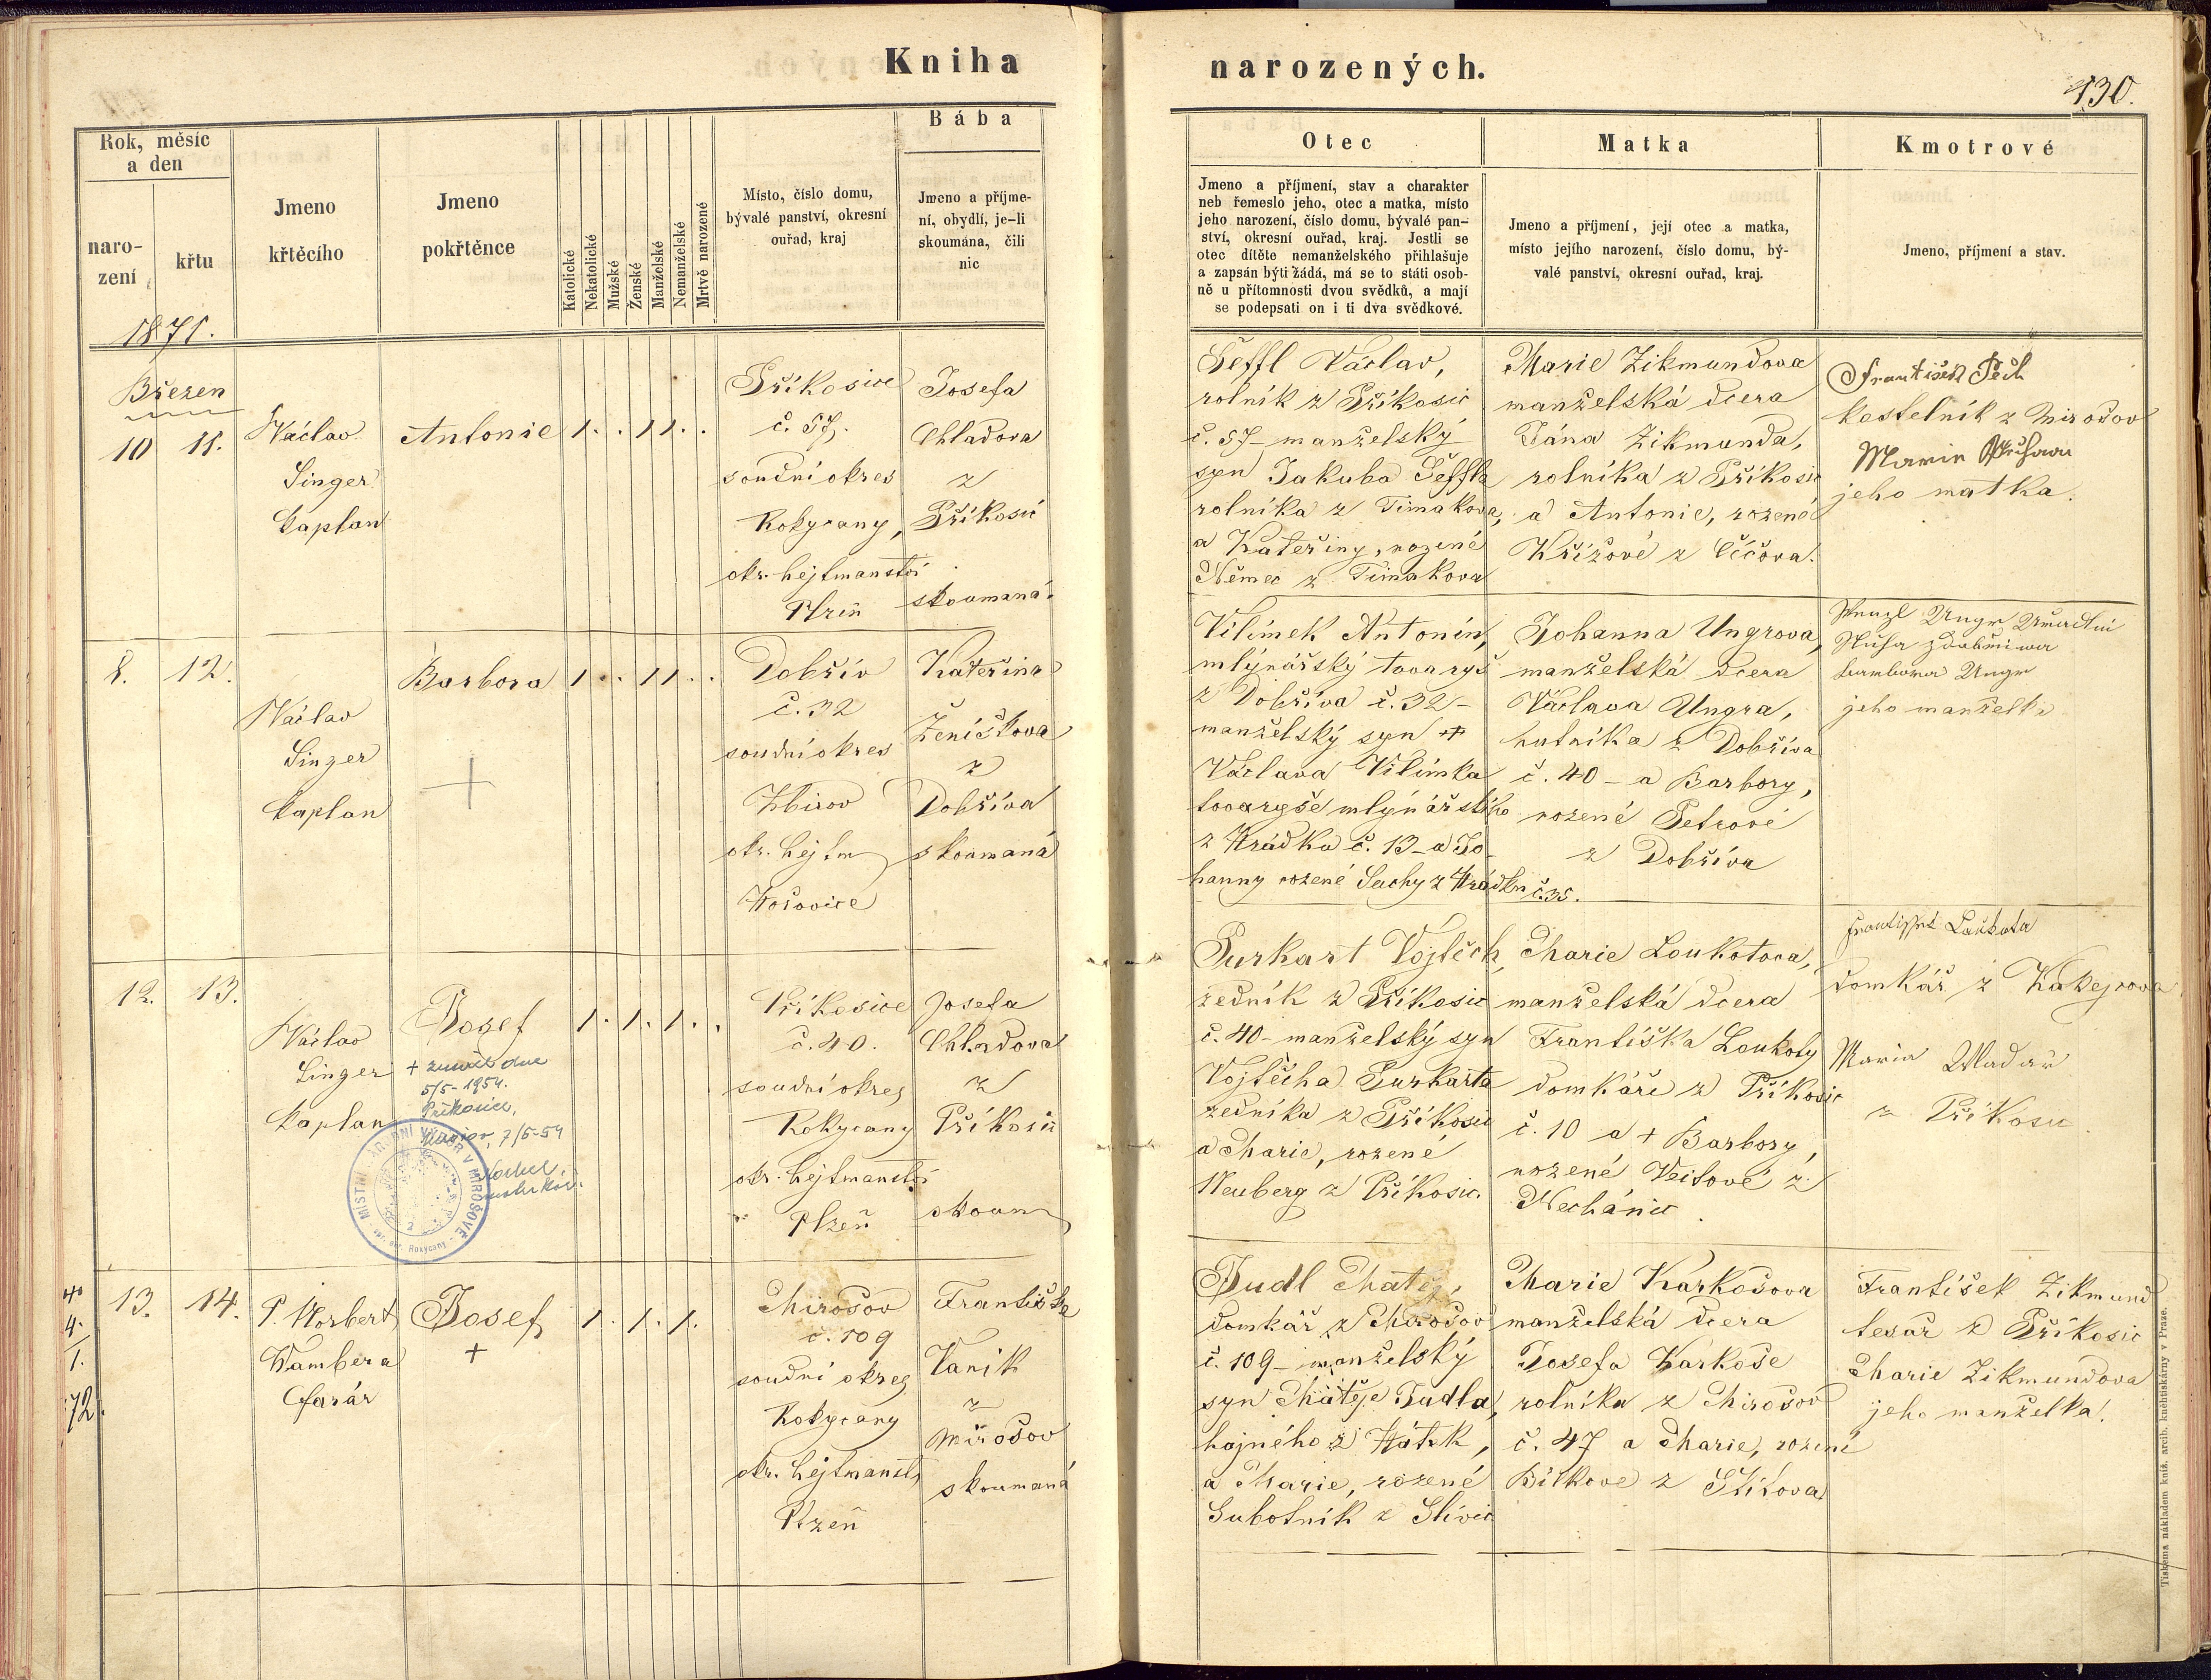 Kniha
narozených.
130.
Rok, měsíc
a den
naro-
zení
křtu
Jmeno
křtěcího
Jmeno
pokřtěnce
Katolické
Nekatolické
Mužské
Ženské
Manželské
Nemanželské
Mrtvě narozené
Místo, číslo domu,
bývalé panství, okresní
ouřad, kraj
Bába
Jmeno a příjme-
ní, obydlí, je-li
skoumána, čili
nic
Otec
Jmeno a příjmení, stav a charakter
neb řemeslo jeho, otec a matka, místo
jeho narození, číslo domu, bývalé pan-
ství, okresní ouřad, kraj. Jestli se
otec dítěte nemanželského přihlašuje
a zapsán býti žádá, má se to státi osob-
ně u přítomnosti dvou svědků, a mají
se podepsati on i ti dva svědkové.
Matka
Jmeno a příjmení, její otec a matka,
místo jejího narození, číslo domu, bý-
valé panství, okresní ouřad, kraj.
Kmotrové
Jmeno, příjmení a stav.
1871.
Březen
10 11.
Václav
Singer
kaplan
Antonie
1 . . 1 1 . .
Příkosice
č. 57.
soudní okres
Rokycany,
okr. hejtmanství
Plzeň
Josefa
Chladova
z
Příkosic
skoumaná.
Šeffl Václav,
rolník z Příkosic
č. 57 - manželský
syn Jakuba Šeffla
rolníka z Timakova,
a Kateřiny, rozené
Němec z Timakova
Marie Zikmundova
manželská dcera
Jána Zikmunda,
rolníka z Příkosic
a Antonie, rozené
Křížové z Číčova.
František Pech
kostelník z Mirošov
Marie
jeho matka.
8. 12.
Václav
Singer
kaplan
Barbora
+
1 . . 1 1 . .
Dobřív
č. 32
soudní okres
Zbirov
okr. hejtm
Hořovice
Kateřina
Ženíškova
z
Dobříva
skoumaná
Vilímek Antonín,
mlýnářský tovaryš
z Dobříva č. 32 -
manželský syn +
Václava Vilímka
tovaryše mlýnářského
z Hrádku č. 13 - a Jo-
hanny rozené Suchy z Hrádku č. 35.
Johanna Ungrova,
manželská dcera
Václava Ungra,
hutníka z Dobříva
č. 40 - a Barbory,
rozené Petrové
z Dobříva
Ungr
Ungr
jeho manželka
12. 13.
Václav
Singer
kaplan
Josef
+ zemřel dne
5/5 - 1954.
Příkosice,
Mirošov, 7/5-54
MÍSTNÍ NÁRODNÍ VÝBOR V MIROŠOVĚ
Rokycany
1 . 1 . 1 . .
Příkosice
č. 40.
soudní okres
Rokycany
okr. hejtmanství
Plzeň
Josefa
Chladova
z
Příkosic
skoum
Purkart Vojtěch,
zedník z Příkosic
č. 40 - manželský syn
Vojtěcha Purkarta
zedníka z Příkosic
a Marie, rozené
Neuberg z Příkosic.
Marie Loukotova,
manželská dcera
Františka Loukoty
domkáře z Příkosic
č. 10 a + Barbory,
rozené Veitové z
Nechánic.
Loukota
domkář z Kakejcova
Maria
z Příkosic.
40
4.
1.
72.
13. 14.
P. Norbert
Vambera
farár
Josef
+
1 . 1 . 1.
Mirošov
č. 109
soudní okres
Rokycany
okr. hejtmanst.
Plzeň
Františka
Vanik
z
Mirošov
skoumaná
Judl Matěj,
domkář z Mirošov
č. 109 - manželský
syn Matěje Judla,
hajného z Hůtek,
a Marie, rozené
Subotník z Slivic
Marie Karkošova
manželská dcera
Josefa Karkoše
rolníka z Mirošov
č. 47 a Marie, rozené
Bílkove z Štítova
František Zikmund
tesař z Příkosic
Marie Zikmundova
jeho manželka.
Tiskema nákladem kníž. arcib. kněhtiskárny v Praze.